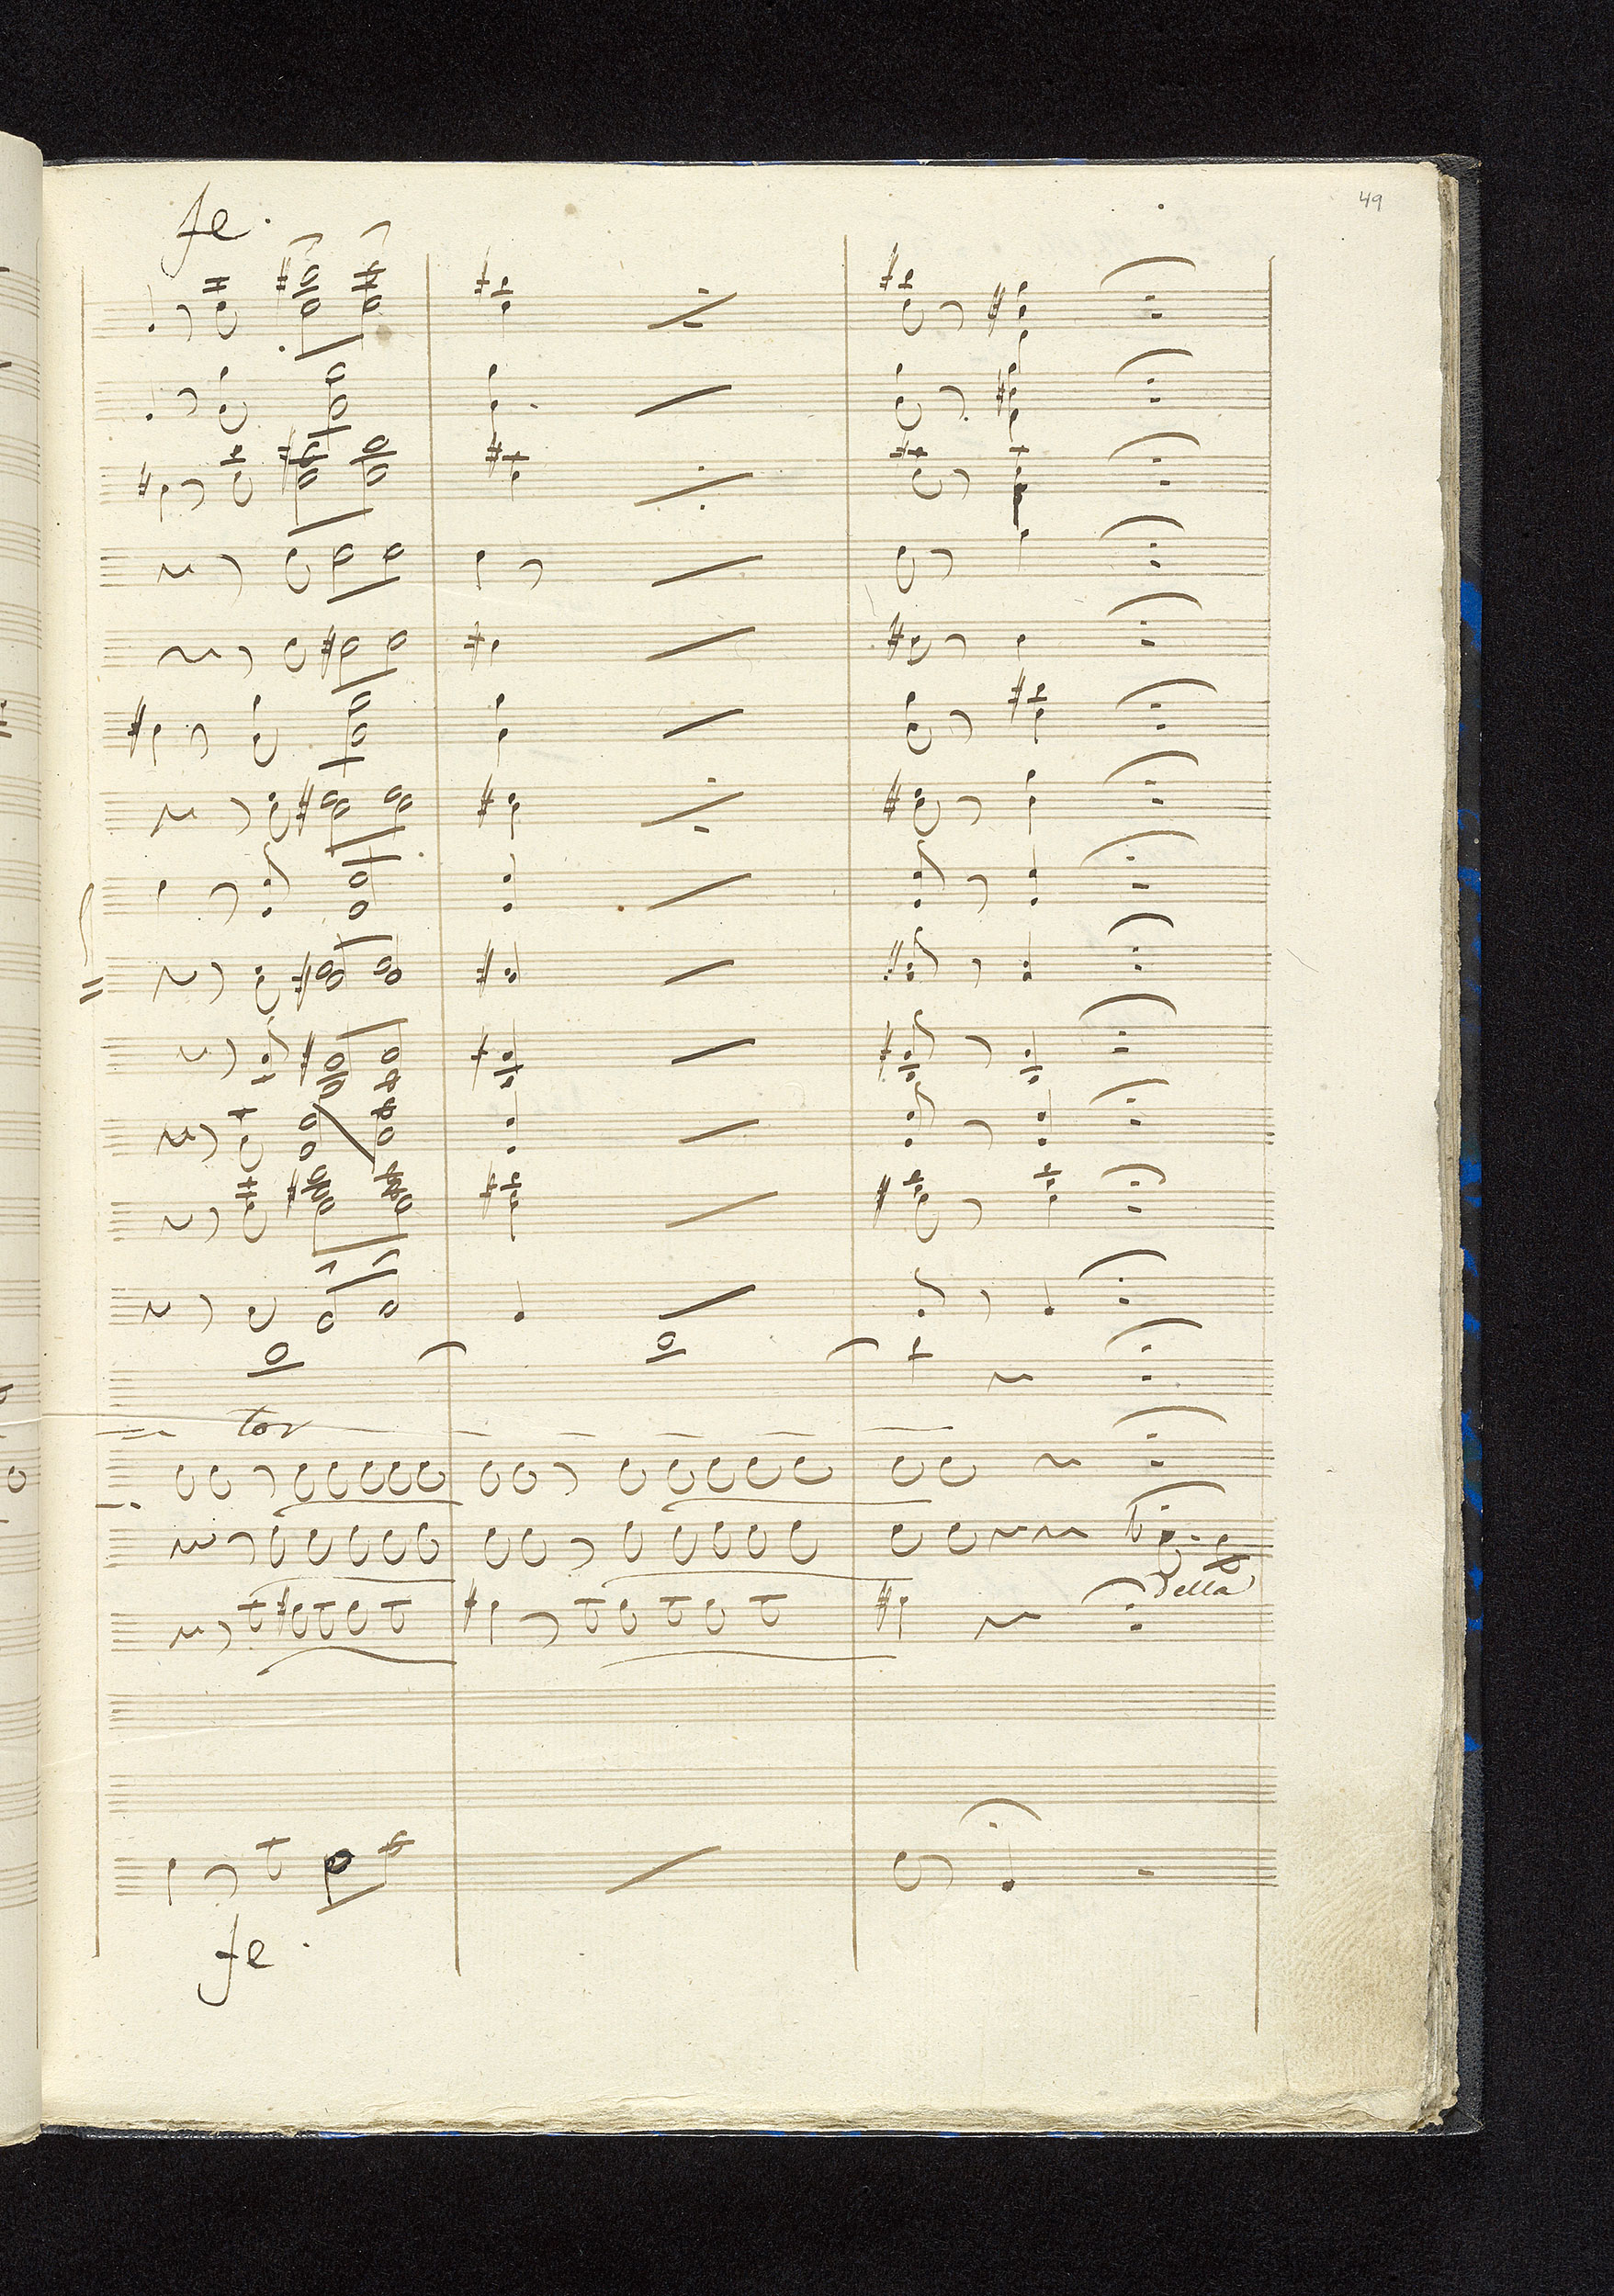 49
fe.
tor
della
fe.